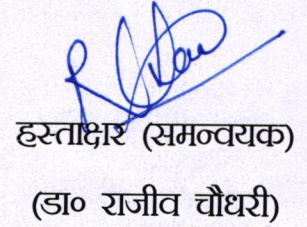 हस्ताक्षर (समन्वयक)
(डा० राजीव चौधरी)